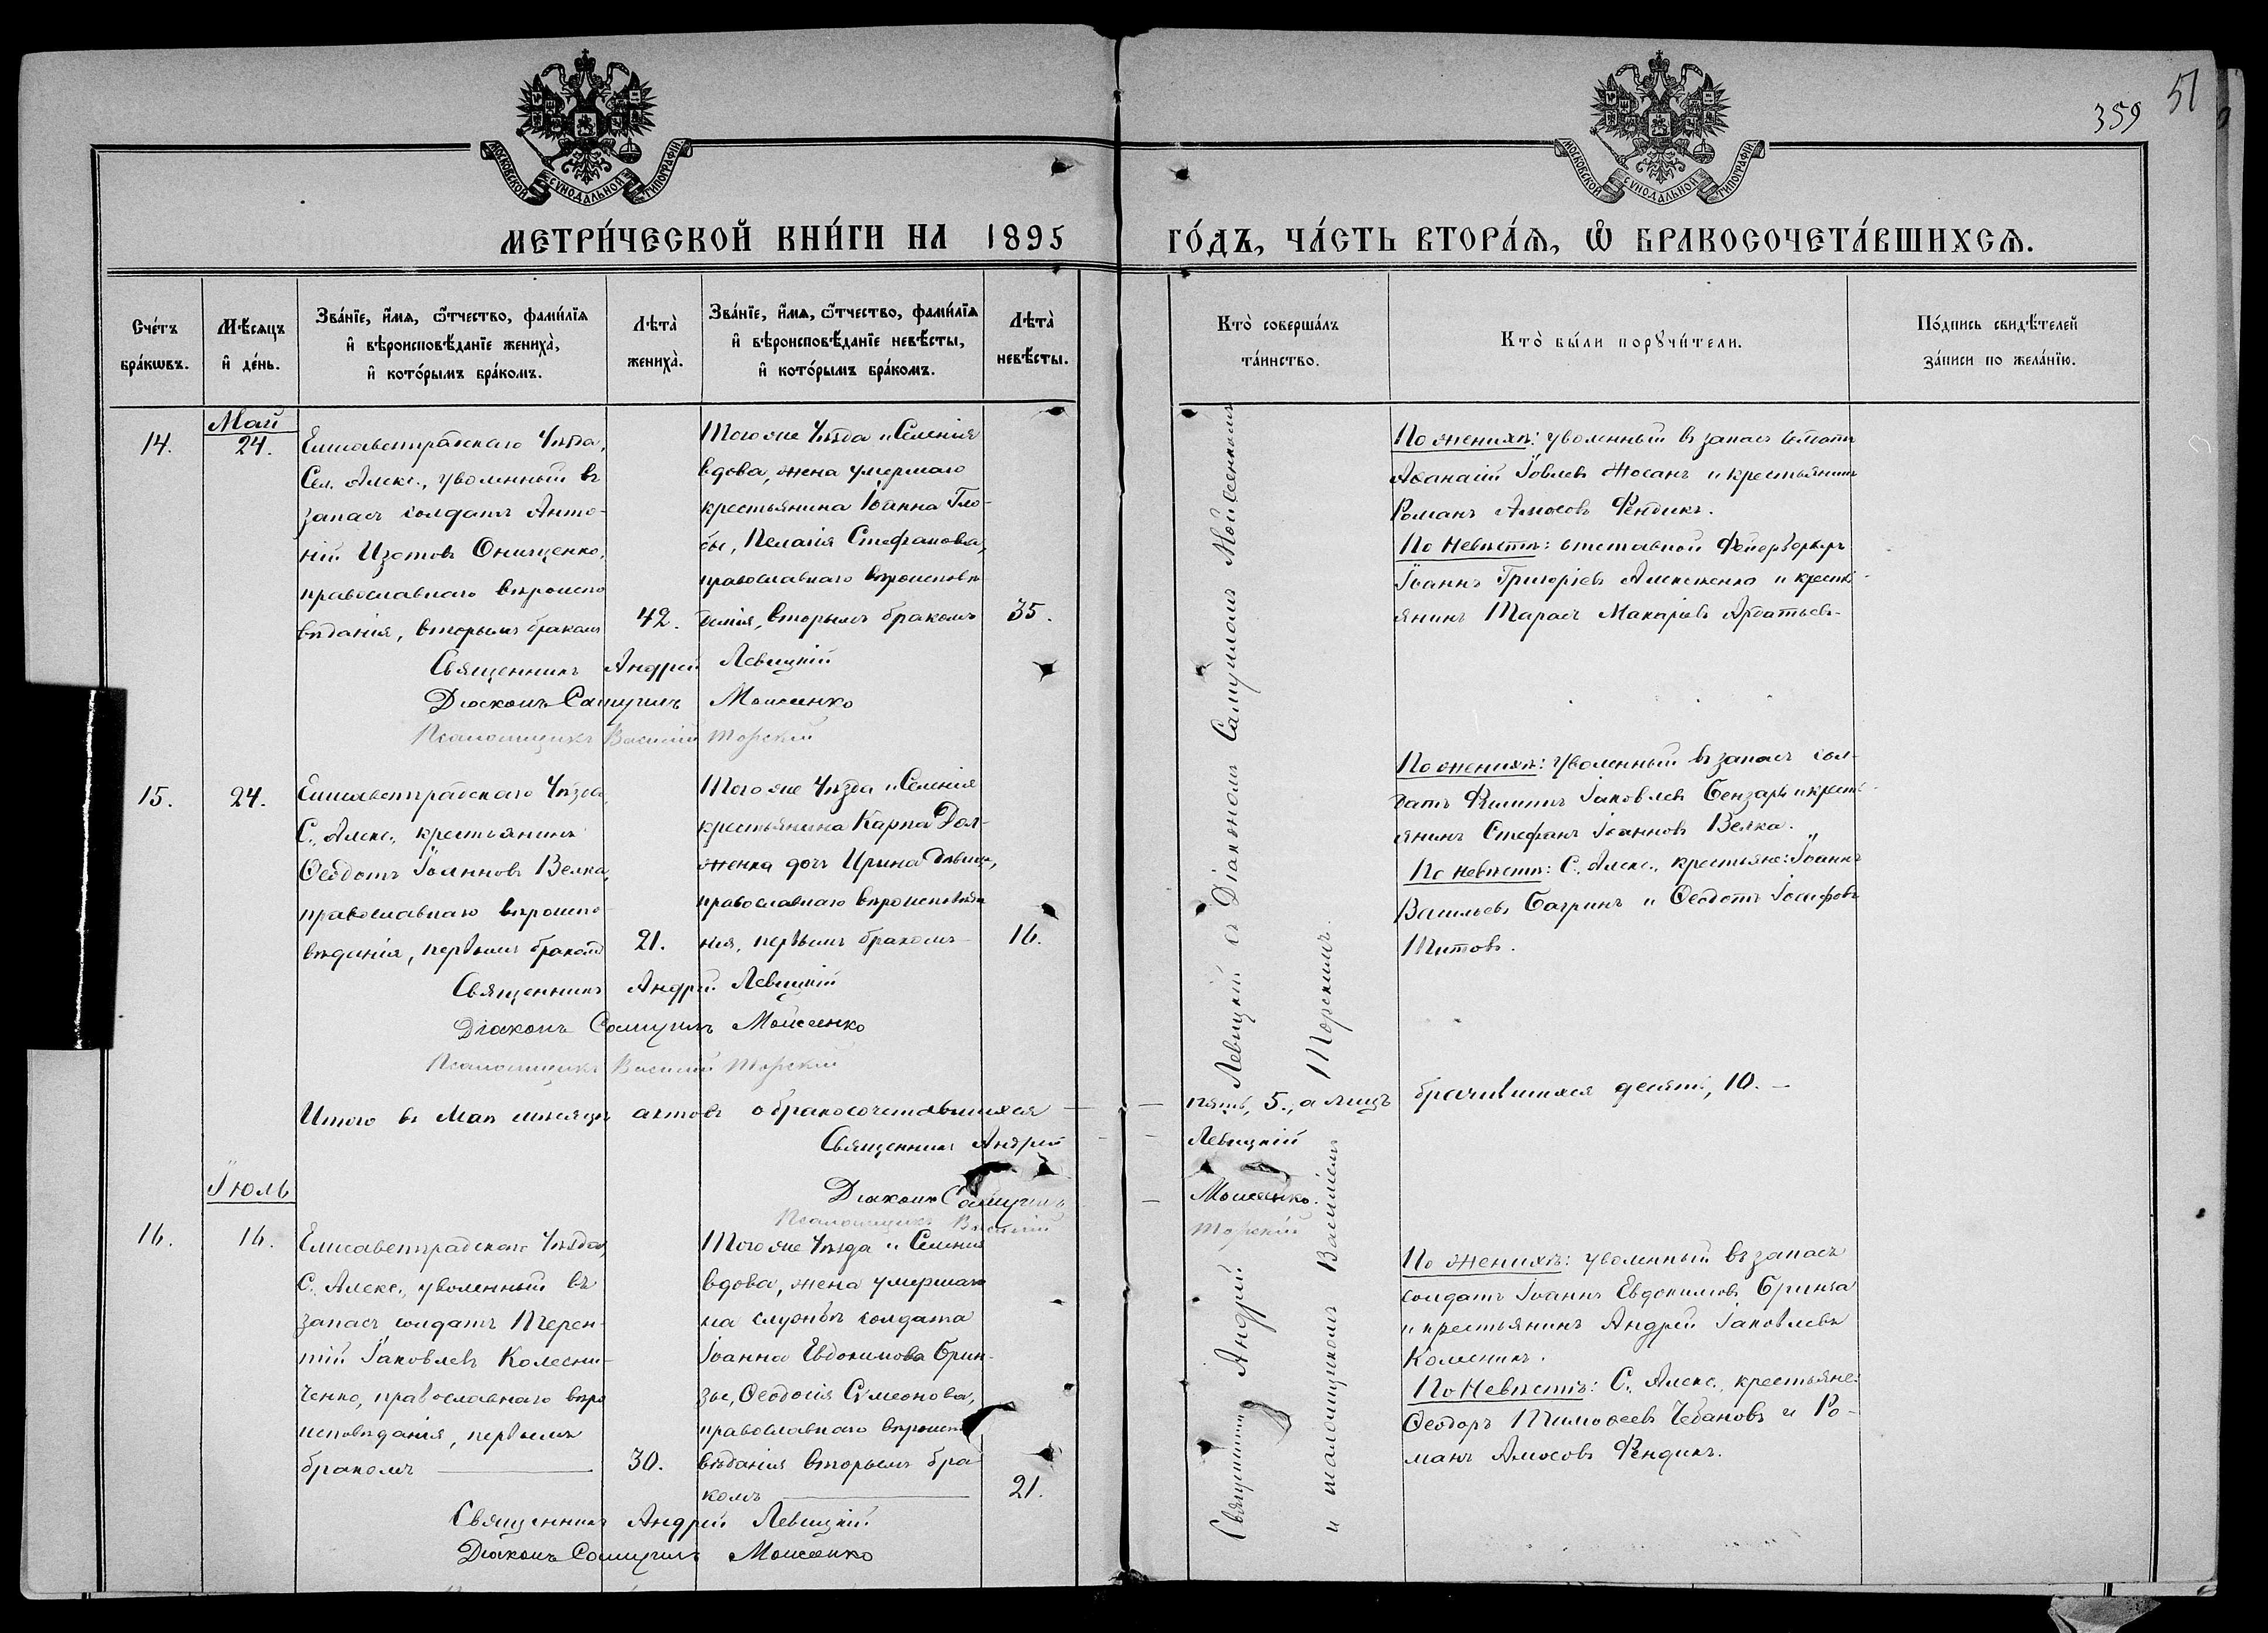 359 51
МОСКОВСКОЙ СѴНОДАЛЬНОЙ ТИПОГРАФІИ
МОСКОВСКОЙ СѴНОДАЛЬНОЙ ТИПОГРАФІИ
МЕТРИ́ЧЕСКОЙ КНИ́ГИ НА 1895 ГО́ДЪ, ЧА́СТЬ ВТОРА́Я, Ѽ БРАКОСОЧЕТА́ВШИХСѦ.
Сче́тъ бра́кѡвъ.
Мѣ́сяцъ и҆ де́нь.
Зва́нїе, и҆́мя, ѻ҆́тчество, фами́лїя и҆ вѣроисповѣ́данїе жениха̀, и҆ кото́рымъ бра́комъ.
Лѣта̀ жениха̀.
Зва́нїе, и҆́мя, ѻ҆́тчество, фами́лїя и҆ вѣроисповѣ́данїе невѣ́сты, и҆ кото́рымъ бра́комъ.
Лѣта̀ невѣ́сты.
Кто̀ соверша́лъ та́инство.
Кто̀ бы́ли порꙋчи́тели.
По́дпись свидѣ́телей за́писи по жела́нїю.
Май
14.
24.
Елисаветградскаго Уѣзда,
Сел. Алекс., уволенный въ
запасъ солдатъ Анто-
ній Изотовъ Онищенко,
православнаго вѣроиспо
вѣданія, вторымъ бракомъ
42.
Того же Уѣзда и Селенія
вдова, жена умершаго
крестьянина Іоанна Гло-
бы, Пелагія Стефанова,
православнаго вѣроисповѣ
данія, вторымъ бракомъ
35.
По женихѣ: уволенный въ запасъ
Аѳанасій Іовлевъ Жосанъ и крестьянинъ
Романъ Амосовъ Фендикъ.
По невѣстѣ: отставной Фейерверкеръ
Іоаннъ Григоріевъ Алексѣенко и кресть-
янинъ Тарасъ Макаріевъ Арбатьевъ.
Священникъ Андрей Левицкій
Діаконъ Самуилъ Моисеенко
Псаломщикъ Василій Торскій
15.
24.
Елисаветградскаго Уѣзда,
С. Алекс., крестьянинъ
Ѳеодотъ Іоанновъ Велка,
православнаго вѣроиспо
вѣданія, первымъ бракомъ
21.
Того же Уѣзда и Селенія
крестьянина Карпа Дол-
женка дочь Ирина дѣвица,
православнаго вѣроисповѣда
нія, первымъ бракомъ
16.
По женихѣ: уволенный въ запасъ сол-
датъ Филиппъ Іаковлевъ Бензарь и кресть-
янинъ Стефанъ Іоанновъ Велка.
По невѣстѣ: С. Алекс., крестьяне: Іоаннъ
Васильевъ Багринъ и Ѳеодотъ Іосифовъ
Титовъ.
Священникъ Андрей Левицкій
Діаконъ Самуилъ Моисеенко
Псаломщикъ Василій Торскій
Итого въ Маѣ мѣсяцѣ актовъ о бракосочетавшихся — — пять, 5., а лицъ брачившихся десять, 10. —
Священникъ Андрей — — Левицкій
Діаконъ Самуилъ — Моисеенко.
Псаломщикъ Василій Торскій
Іюль
16.
16.
Елисаветградскаго Уѣзда,
С. Алекс., уволенный въ
запасъ солдатъ Терен-
тій Іаковлевъ Колесни-
ченко, православнаго вѣро
исповѣданія, первымъ
бракомъ
30.
Того же Уѣзда и Селенія
вдова, жена умершаго
на службѣ солдата
Іоанна Евдокимова Брин-
зы, Ѳеодосія Сѵмеонова,
православнаго вѣроиспо
вѣданія вторымъ бра
комъ
21.
По женихѣ: уволенный въ запасъ
солдатъ Іоаннъ Евдокимовъ Бринза
и крестьянинъ Андрей Іаковлевъ
По Невѣстѣ: С. Алекс., крестьяне:
Ѳеодоръ Тимоѳеевъ Чебановъ и Ро-
манъ Амосовъ Фендикъ.
Священникъ Андрей Левицкій
Діаконъ Самуилъ Моисеенко
Священникъ Андрей Левицкій съ Діакономъ Самуиломъ Моисеенкомъ
и псаломщикомъ Василіемъ Торскимъ.